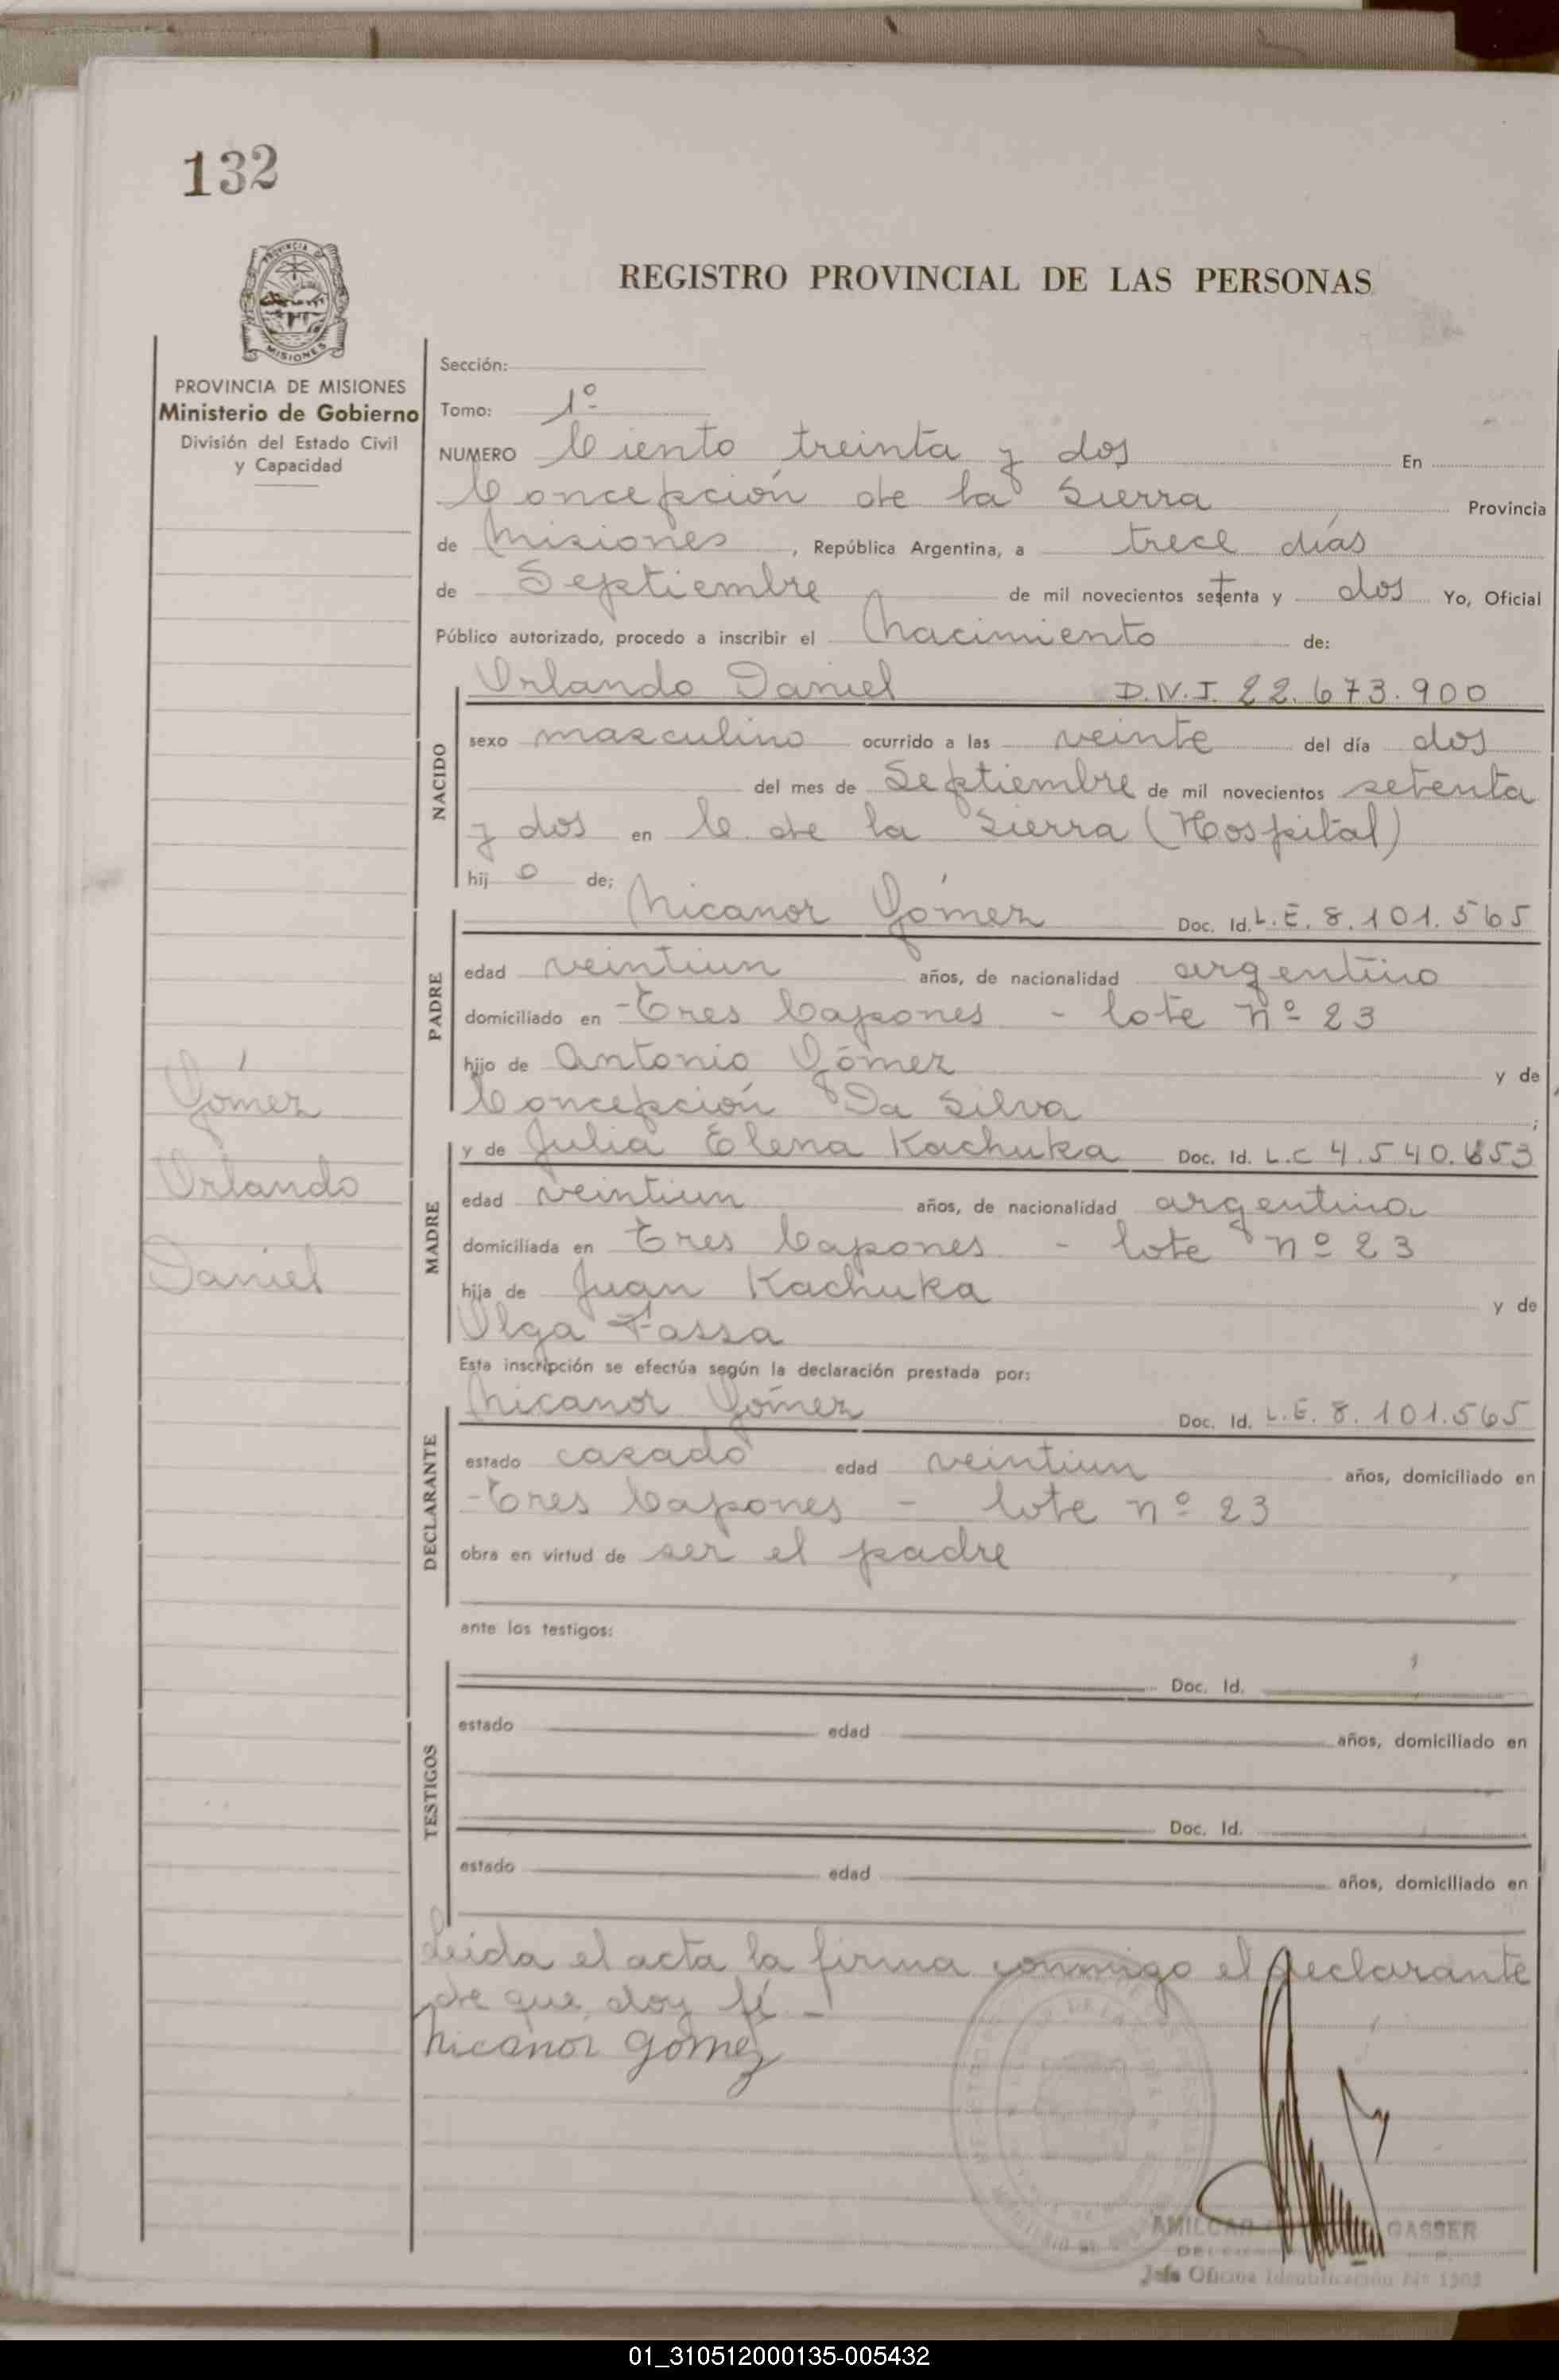 132
PROVINCIA DE
MISIONES
REGISTRO PROVINCIAL DE LAS PERSONAS
PROVINCIA DE MISIONES
Ministerio de Gobierno
División del Estado Civil
y Capacidad
Sección:
Tomo: 1º
NUMERO Ciento treinta y dos En
Concepción de la Sierra Provincia
de Misiones, República Argentina, a trece días
de Septiembre de mil novecientos setenta y dos Yo, Oficial
Público autorizado, procedo a inscribir el Nacimiento de:
Orlando Daniel D.N.I. 22.673.900
NACIDO
sexo masculino ocurrido a las veinte del día dos
del mes de Septiembre de mil novecientos setenta
y dos en C. de la Sierra (Hospital)
hij o de;
PADRE
Nicanor Gómez Doc. Id. L.E. 8.101.565
edad veintiun años, de nacionalidad argentino
domiciliado en Tres Capones - lote nº 23
hijo de Antonio Gómez y de
Concepción Da Silva ;
MADRE
y de Julia Elena Kachuka Doc. Id. L.C 4.540.653
edad veintiun años, de nacionalidad argentina
domiciliada en Tres Capones - lote nº 23
hija de Juan Kachuka y de
Olga Fassa
Gómez
Orlando
Daniel
Esta inscripción se efectúa según la declaración prestada por:
DECLARANTE
Nicanor Gómez Doc. Id. L.E. 8.101.565
estado casado edad veintiun años, domiciliado en
Tres Capones - lote nº 23
obra en virtud de ser el padre
ante los testigos:
TESTIGOS
Doc. Id.
estado edad años, domiciliado en
Doc. Id.
estado edad años, domiciliado en
Leida el acta la firma conmigo el declarante
de que doy fé -
Nicanor Gomez
AMILCAR GASSER
Jefe Oficina Identificación Nº
01_310512000135-005432